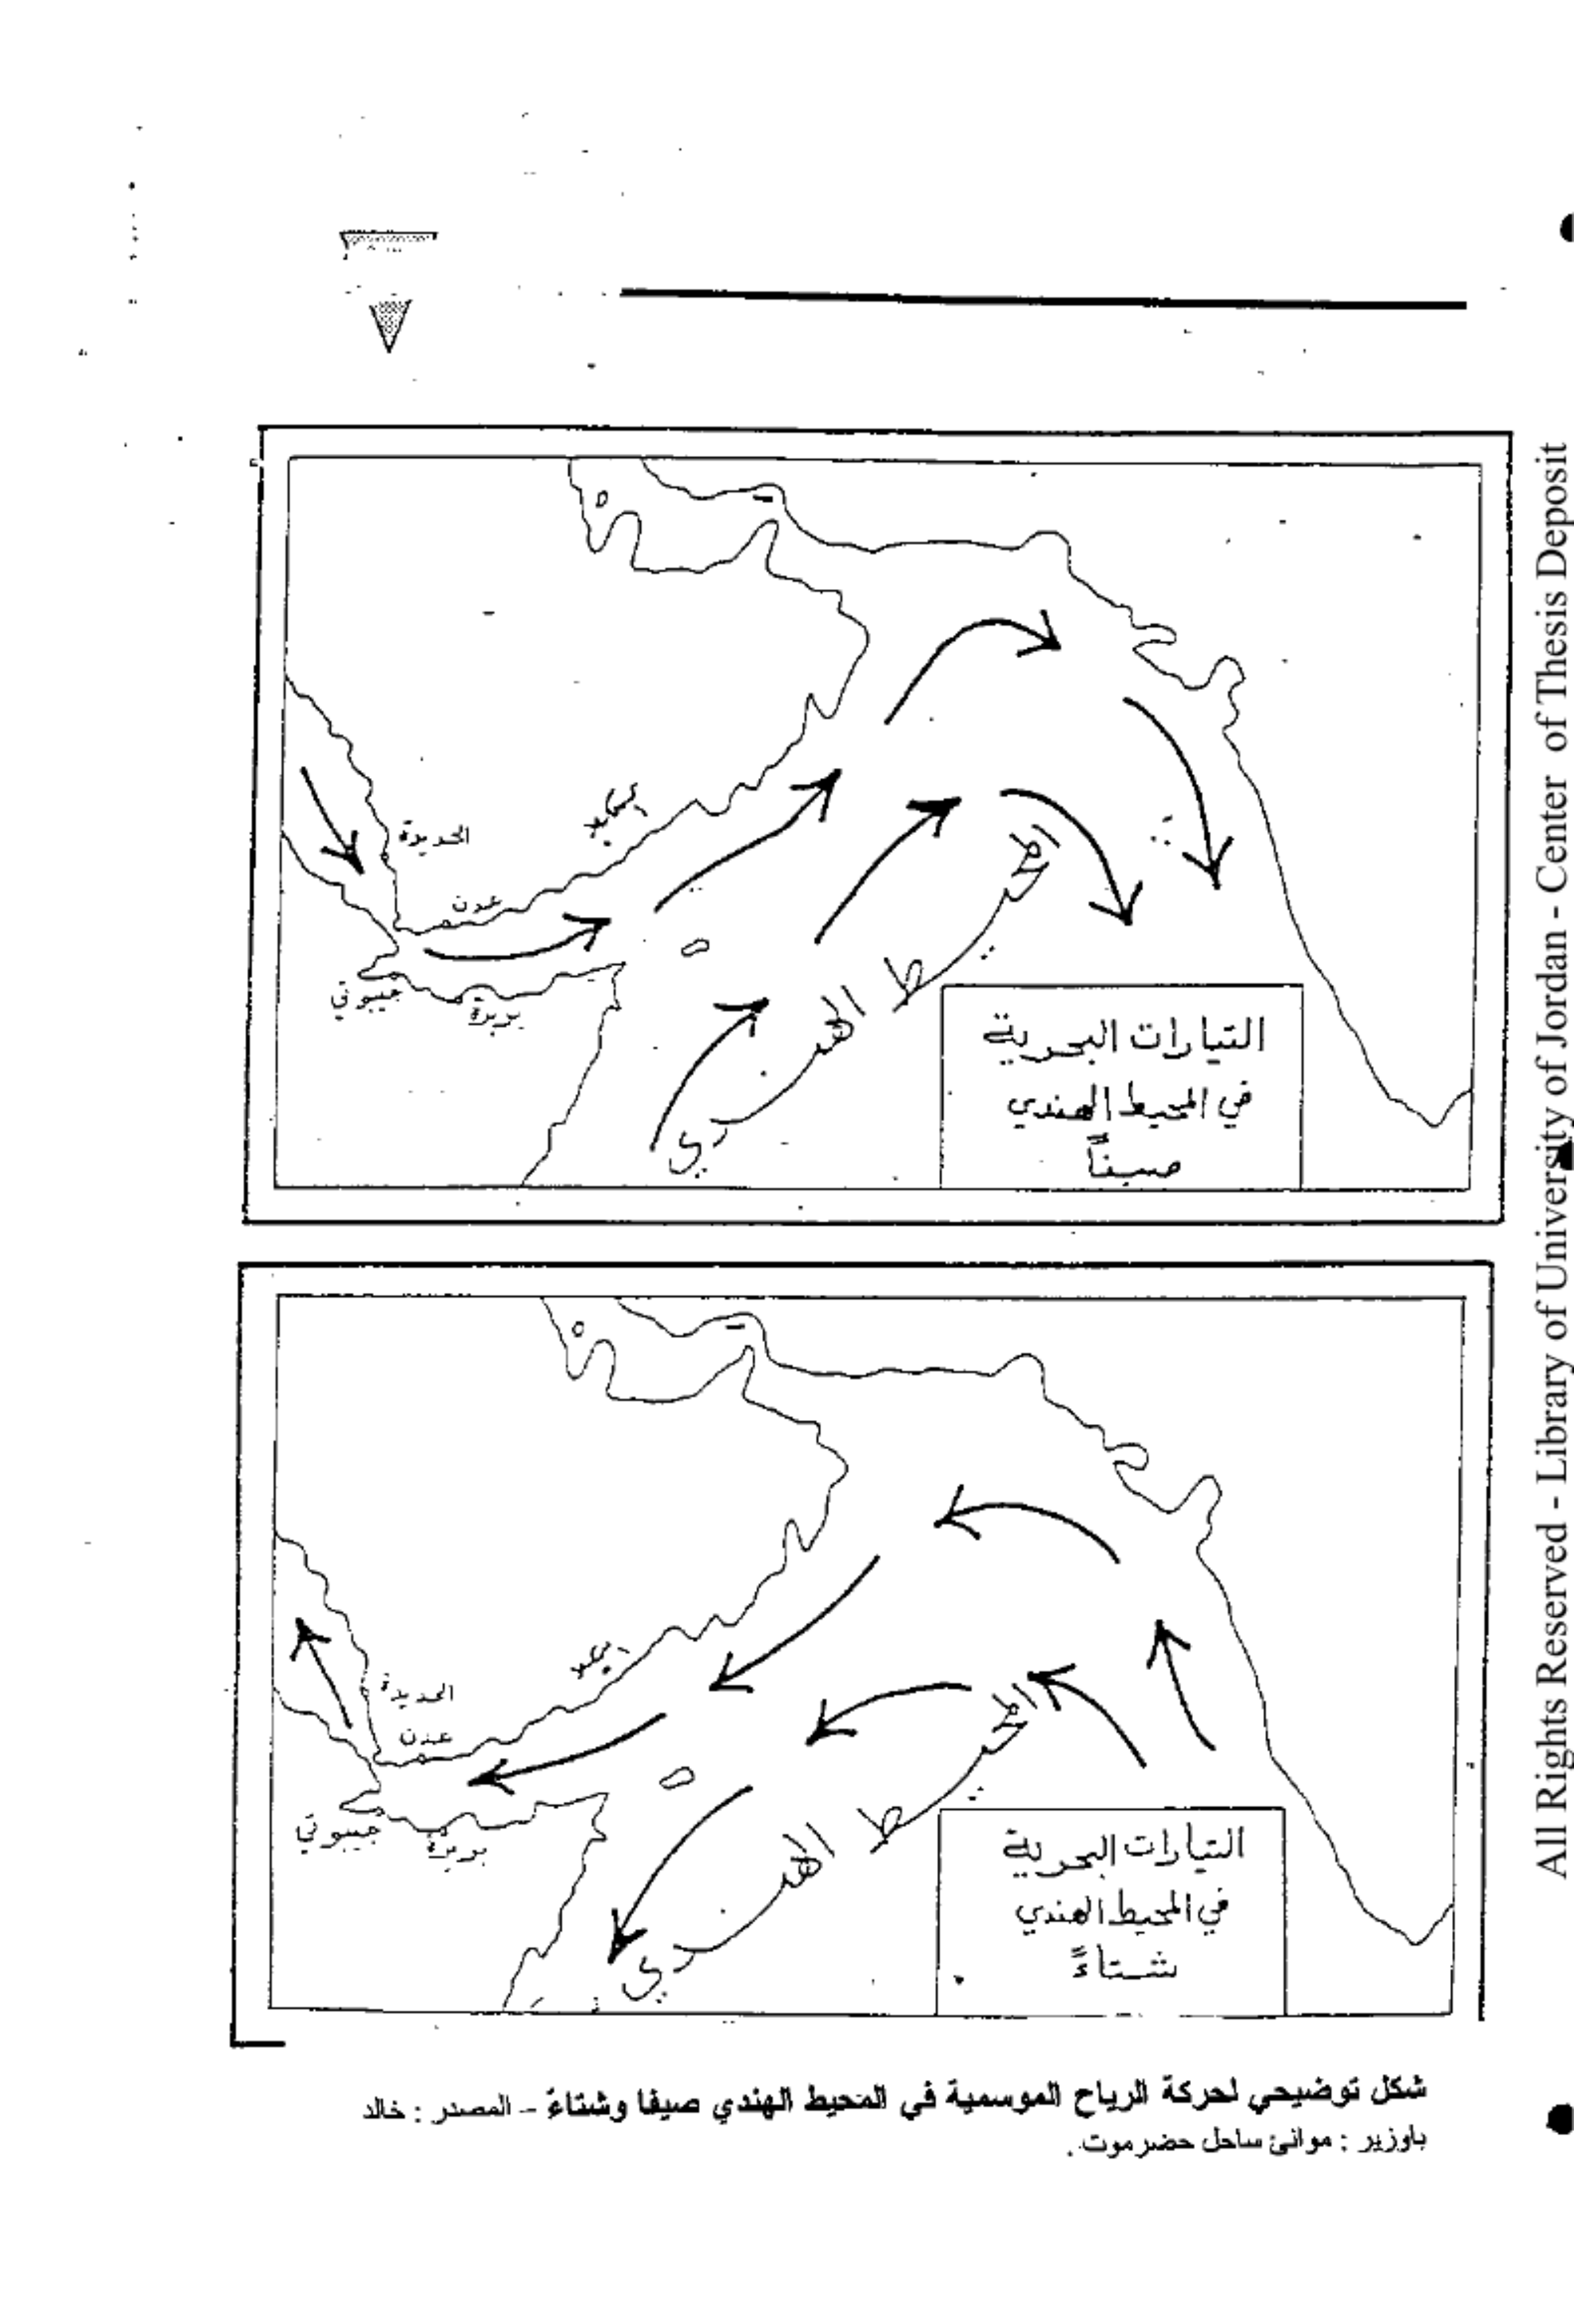 الحديدة
عدن
جيبوتي
بربرة
المحيط الهندي
التيارات البحرية
في المحيط الهندي
صيفاً
الحديدة
عدن
جيبوتي
بربرة
المحيط الهندي
التيارات البحرية
في المحيط الهندي
شتاءً
شكل توضيحي لحركة الرياح الموسمية في المحيط الهندي صيفا وشتاءً - المصدر : خالد
باوزير : موانئ ساحل حضرموت .
All Rights Reserved - Library of University of Jordan - Center of Thesis Deposit